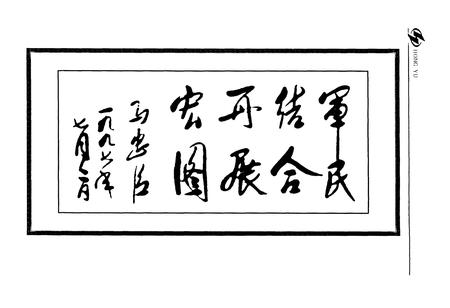 軍民
结合
再展
宏图
马忠臣
一九九年
七月日
HONG YU